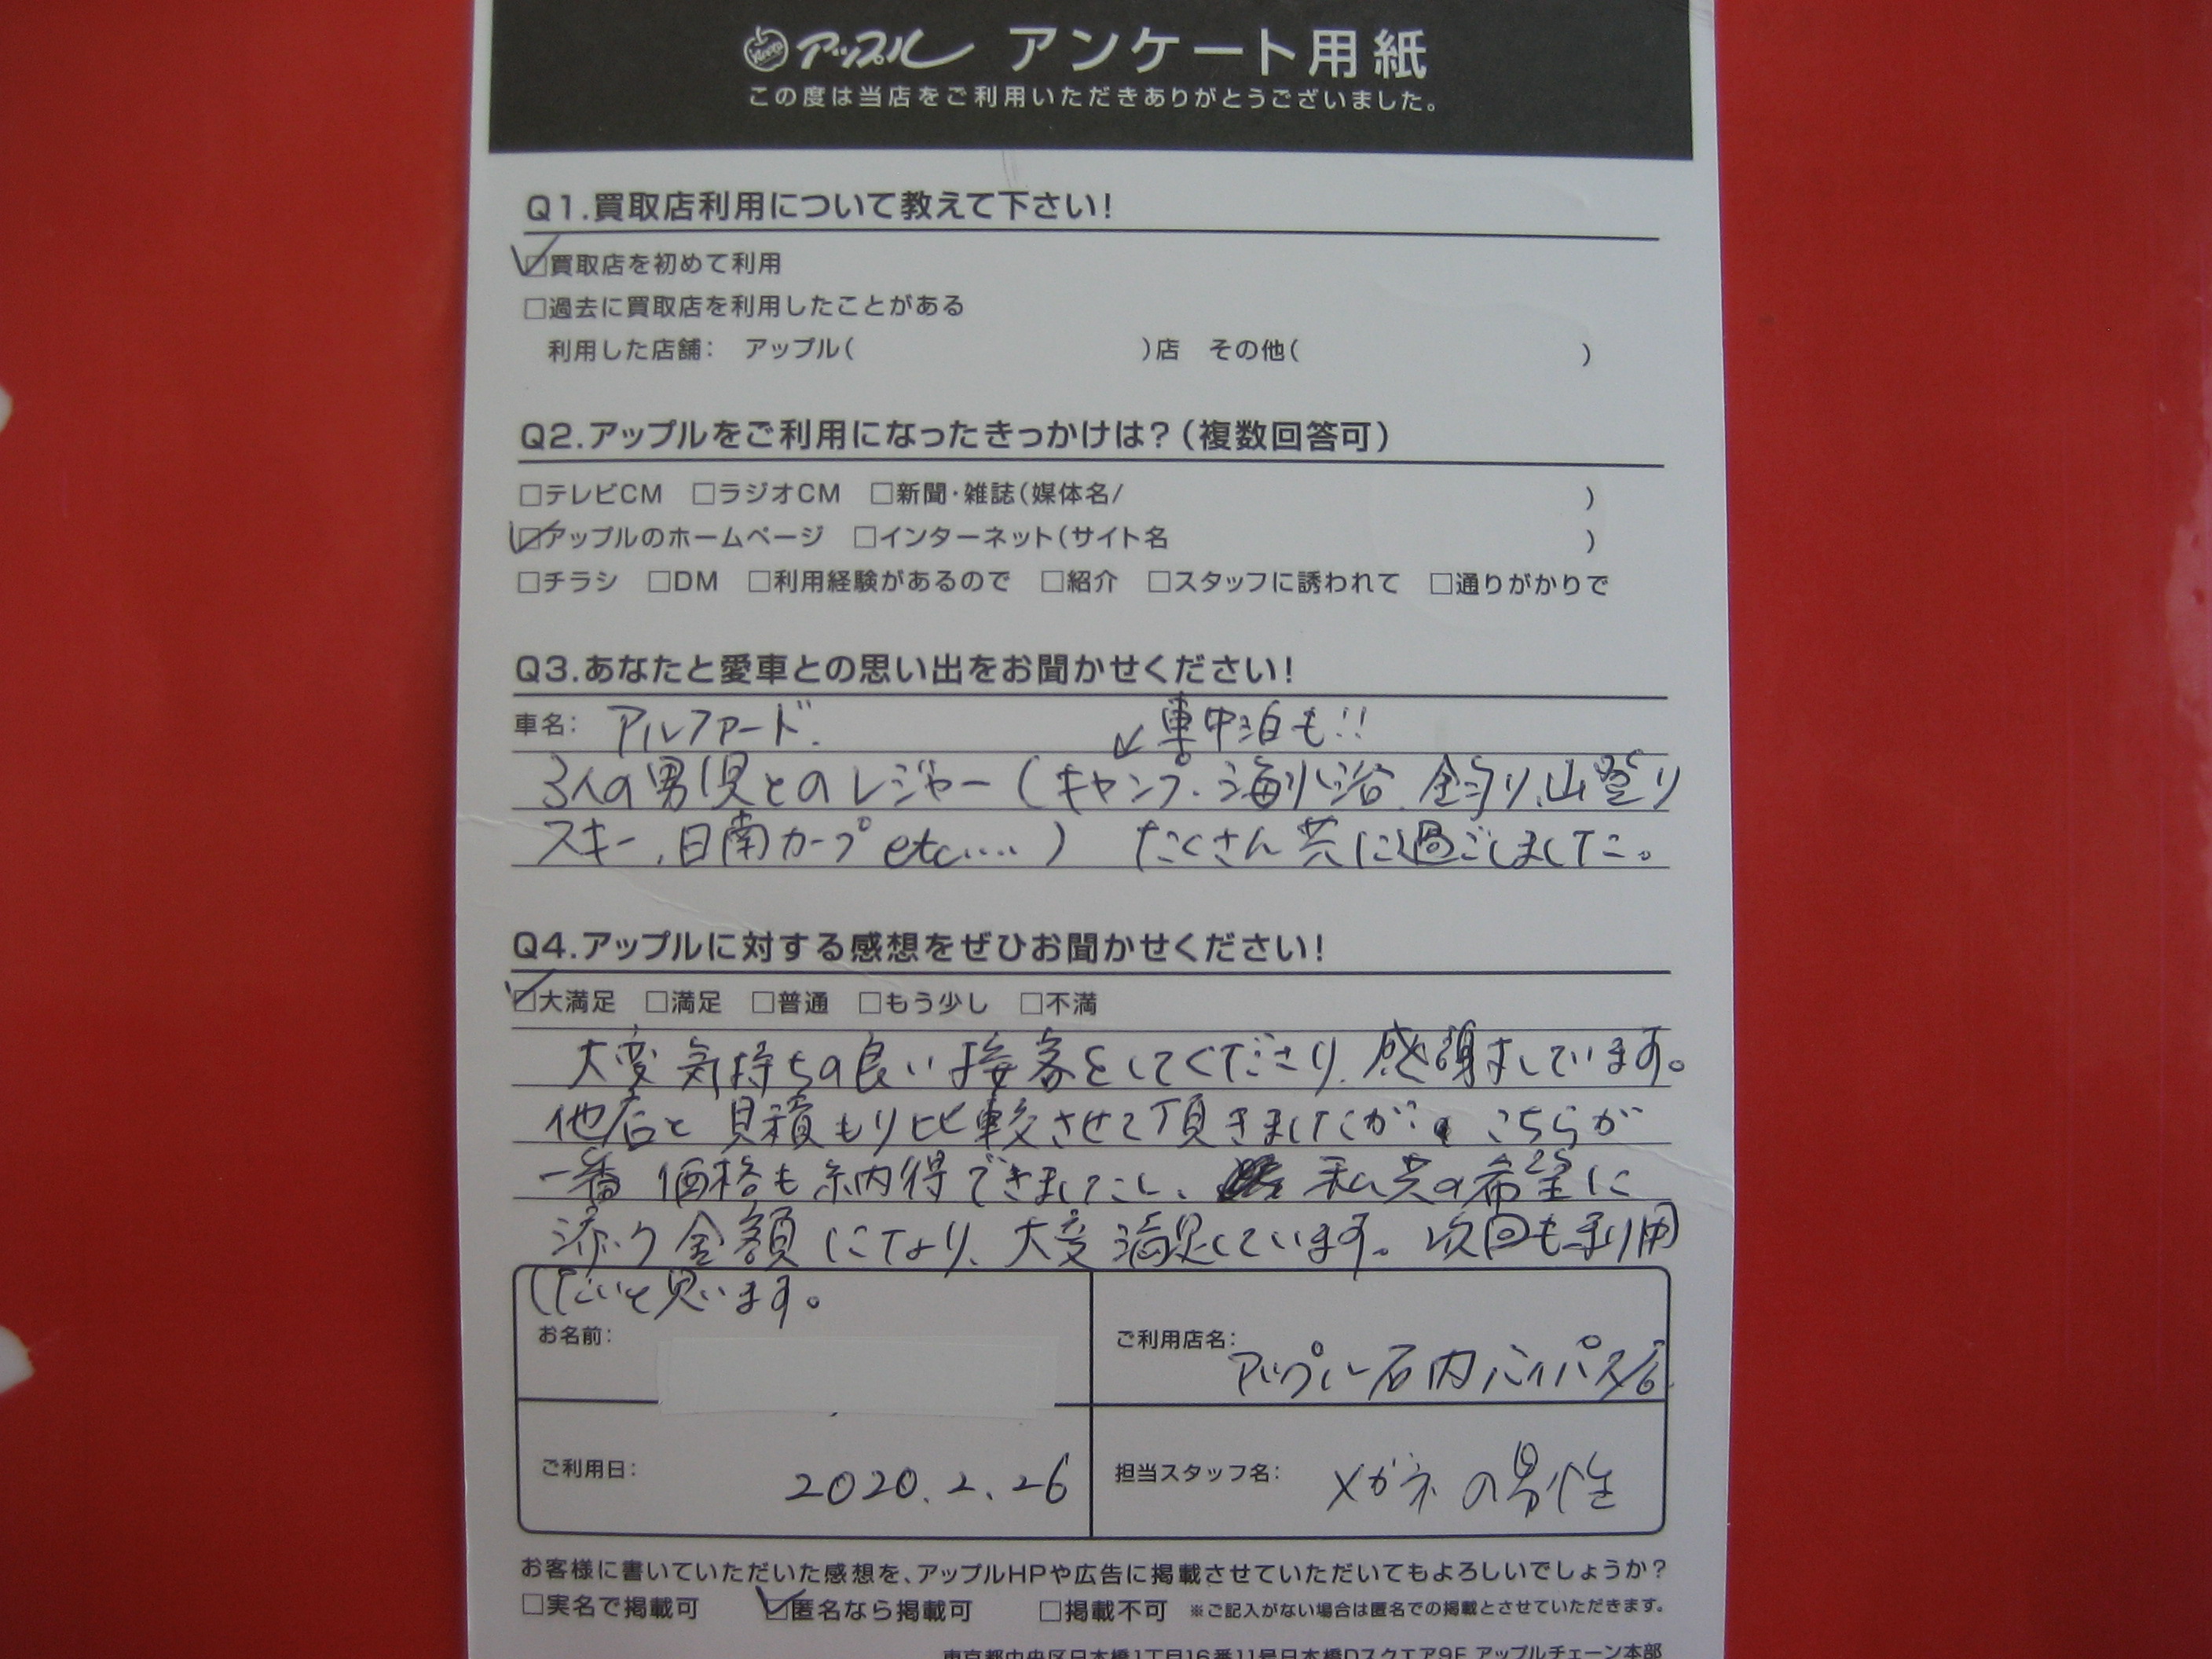 アップル アンケート用紙
この度は当店をご利用いただきありがとうございました。
Q1.買取店利用について教えて下さい!
☑買取店を初めて利用
□過去に買取店を利用したことがある
利用した店舗: アップル( )店 その他( )
Q2.アップルをご利用になったきっかけは?(複数回答可)
□テレビCM □ラジオCM □新聞・雑誌(媒体名/ )
☑アップルのホームページ □インターネット(サイト名 )
□チラシ □DM □利用経験があるので □紹介 □スタッフに誘われて □通りがかりで
Q3.あなたと愛車との思い出をお聞かせください!
車名: アルファード. ↙車中泊も!!
3人の男児とのレジャー(キャンプ、海水浴、釣り、山登り
スキー、日南カープetc....) たくさん共に過ごしました。
Q4.アップルに対する感想をぜひお聞かせください!
☑大満足 □満足 □普通 □もう少し □不満
大変気持ちの良い接客をしてくださり、感謝しています。
他店と見積もり比較させて頂きましたが、こちらが
一番価格も納得できましたし、私共の希望に
添う金額になり、大変満足しています。次回も利用
したいと思います。
お名前:
ご利用店名: アップル石内バイパス店
ご利用日: 2020.2.26
担当スタッフ名: メガネの男性
お客様に書いていただいた感想を、アップルHPや広告に掲載させていただいてもよろしいでしょうか?
□実名で掲載可 ☑匿名なら掲載可 □掲載不可 ※ご記入がない場合は匿名での掲載とさせていただきます。
東京都中央区日本橋1丁目16番11号日本橋Dスクエア9F アップルチェーン本部